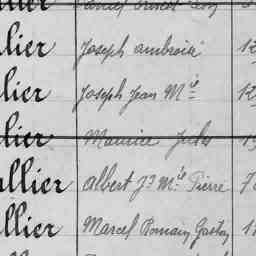 llier Joseph ambroise 12
llier Joseph Jean Mie 12
llier Maurice Jules 13
allier Albert Jh Mie Pierre 7
llier Marcel Romain Gaston 1